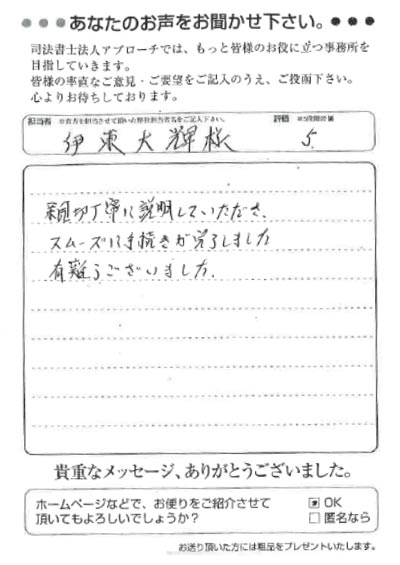 ●●●あなたのお声をお聞かせ下さい。●●●
司法書士法人アプローチでは、もっと皆様のお役に立つ事務所を
目指していきます。
皆様の率直なご意見・ご要望をご記入のうえ、ご投函下さい。
心よりお待ちしております。
担当者 ※貴方を担当させて頂いた弊社担当者名をご記入下さい。 評価 ※5段階評価
伊東大輝様 5.
親切丁寧に説明していただき、
スムーズに手続きが完了しました
有難うございました。
貴重なメッセージ、ありがとうございました。
ホームページなどで、お便りをご紹介させて
頂いてもよろしいでしょうか?
OK
匿名なら
お送り頂いた方には粗品をプレゼントいたします。